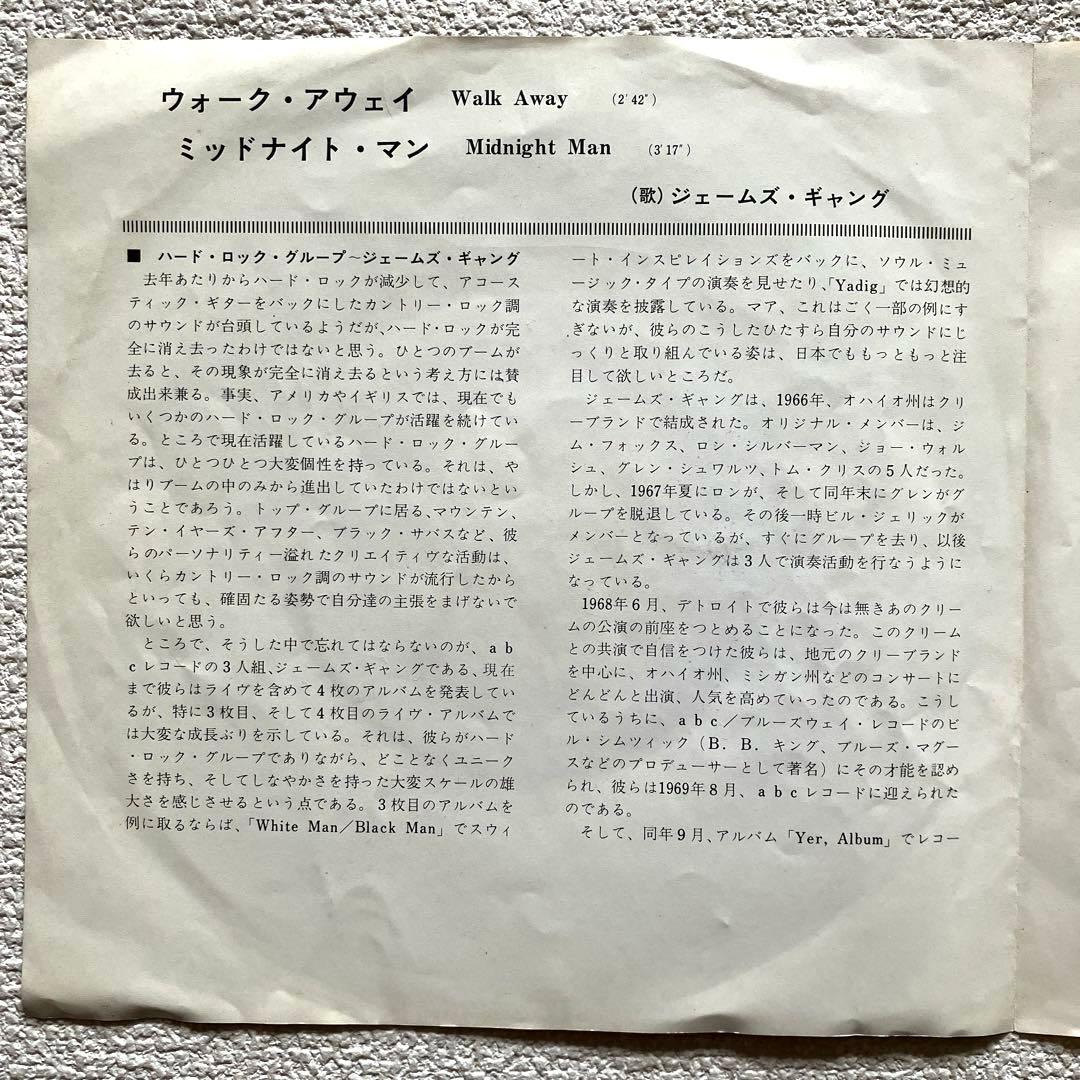 ウォーク・アウェイ Walk Away (2'42")
ミッドナイト・マン Midnight Man (3'17")
(歌)ジェームズ・ギャング
■ ハード・ロック・グループ〜ジェームズ・ギャング
去年あたりからハード・ロックが減少して、アコース
ティック・ギターをバックにしたカントリー・ロック調
のサウンドが台頭しているようだが、ハード・ロックが完
全に消え去ったわけではないと思う。ひとつのブームが
去ると、その現象が完全に消え去るという考え方には賛
成出来兼る。事実、アメリカやイギリスでは、現在でも
いくつかのハード・ロック・グループが活躍を続けてい
る。ところで現在活躍しているハード・ロック・グルー
プは、ひとつひとつ大変個性を持っている。それは、や
はりブームの中のみから進出していたわけではないとい
うことであろう。トップ・グループに居る、マウンテン、
テン・イヤーズ・アフター、ブラック・サバスなど、彼
らのパーソナリティー溢れたクリエイティヴな活動は、
いくらカントリー・ロック調のサウンドが流行したから
といっても、確固たる姿勢で自分達の主張をまげないで
欲しいと思う。
ところで、そうした中で忘れてはならないのが、ab
cレコードの3人組、ジェームズ・ギャングである、現在
まで彼らはライヴを含めて4枚のアルバムを発表してい
るが、特に3枚目、そして4枚目のライヴ・アルバムで
は大変な成長ぶりを示している。それは、彼らがハード
・ロック・グループでありながら、どことなくユニーク
さを持ち、そしてしなやかさを持った大変スケールの雄
大さを感じさせるという点である。3枚目のアルバムを
例に取るならば、「White Man/Black Man」でスウィ
ート・インスピレイションズをバックに、ソウル・ミュ
ージック・タイプの演奏を見せたり、「Yadig」では幻想的
な演奏を披露している。マア、これはごく一部の例にす
ぎないが、彼らのこうしたひたすら自分のサウンドにじ
っくりと取り組んでいる姿は、日本でももっともっと注
目して欲しいところだ。
ジェームズ・ギャングは、1966年、オハイオ州はクリ
ーブランドで結成された。オリジナル・メンバーは、ジ
ム・フォックス、ロン・シルバーマン、ジョー・ウォル
シュ、グレン・シュワルツ、トム・クリスの5人だった。
しかし、1967年夏にロンが、そして同年末にグレンがグ
ループを脱退している。その後一時ビル・ジェリックが
メンバーとなっているが、すぐにグループを去り、以後
ジェームズ・ギャングは3人で演奏活動を行なうように
なっている。
1968年6月、デトロイトで彼らは今は無きあのクリー
ムの公演の前座をつとめることになった。このクリーム
との共演で自信をつけた彼らは、地元のクリーブランド
を中心に、オハイオ州、ミシガン州などのコンサートに
どんどんと出演、人気を高めていったのである。こうし
ているうちに、abc/ブルーズウェイ・レコードのビ
ル・シムツィック(B. B. キング、ブルーズ・マグー
スなどのプロデューサーとして著名)にその才能を認め
られ、彼らは1969年8月、abcレコードに迎えられた
のである。
そして、同年9月、アルバム「Yer, Album」でレコー